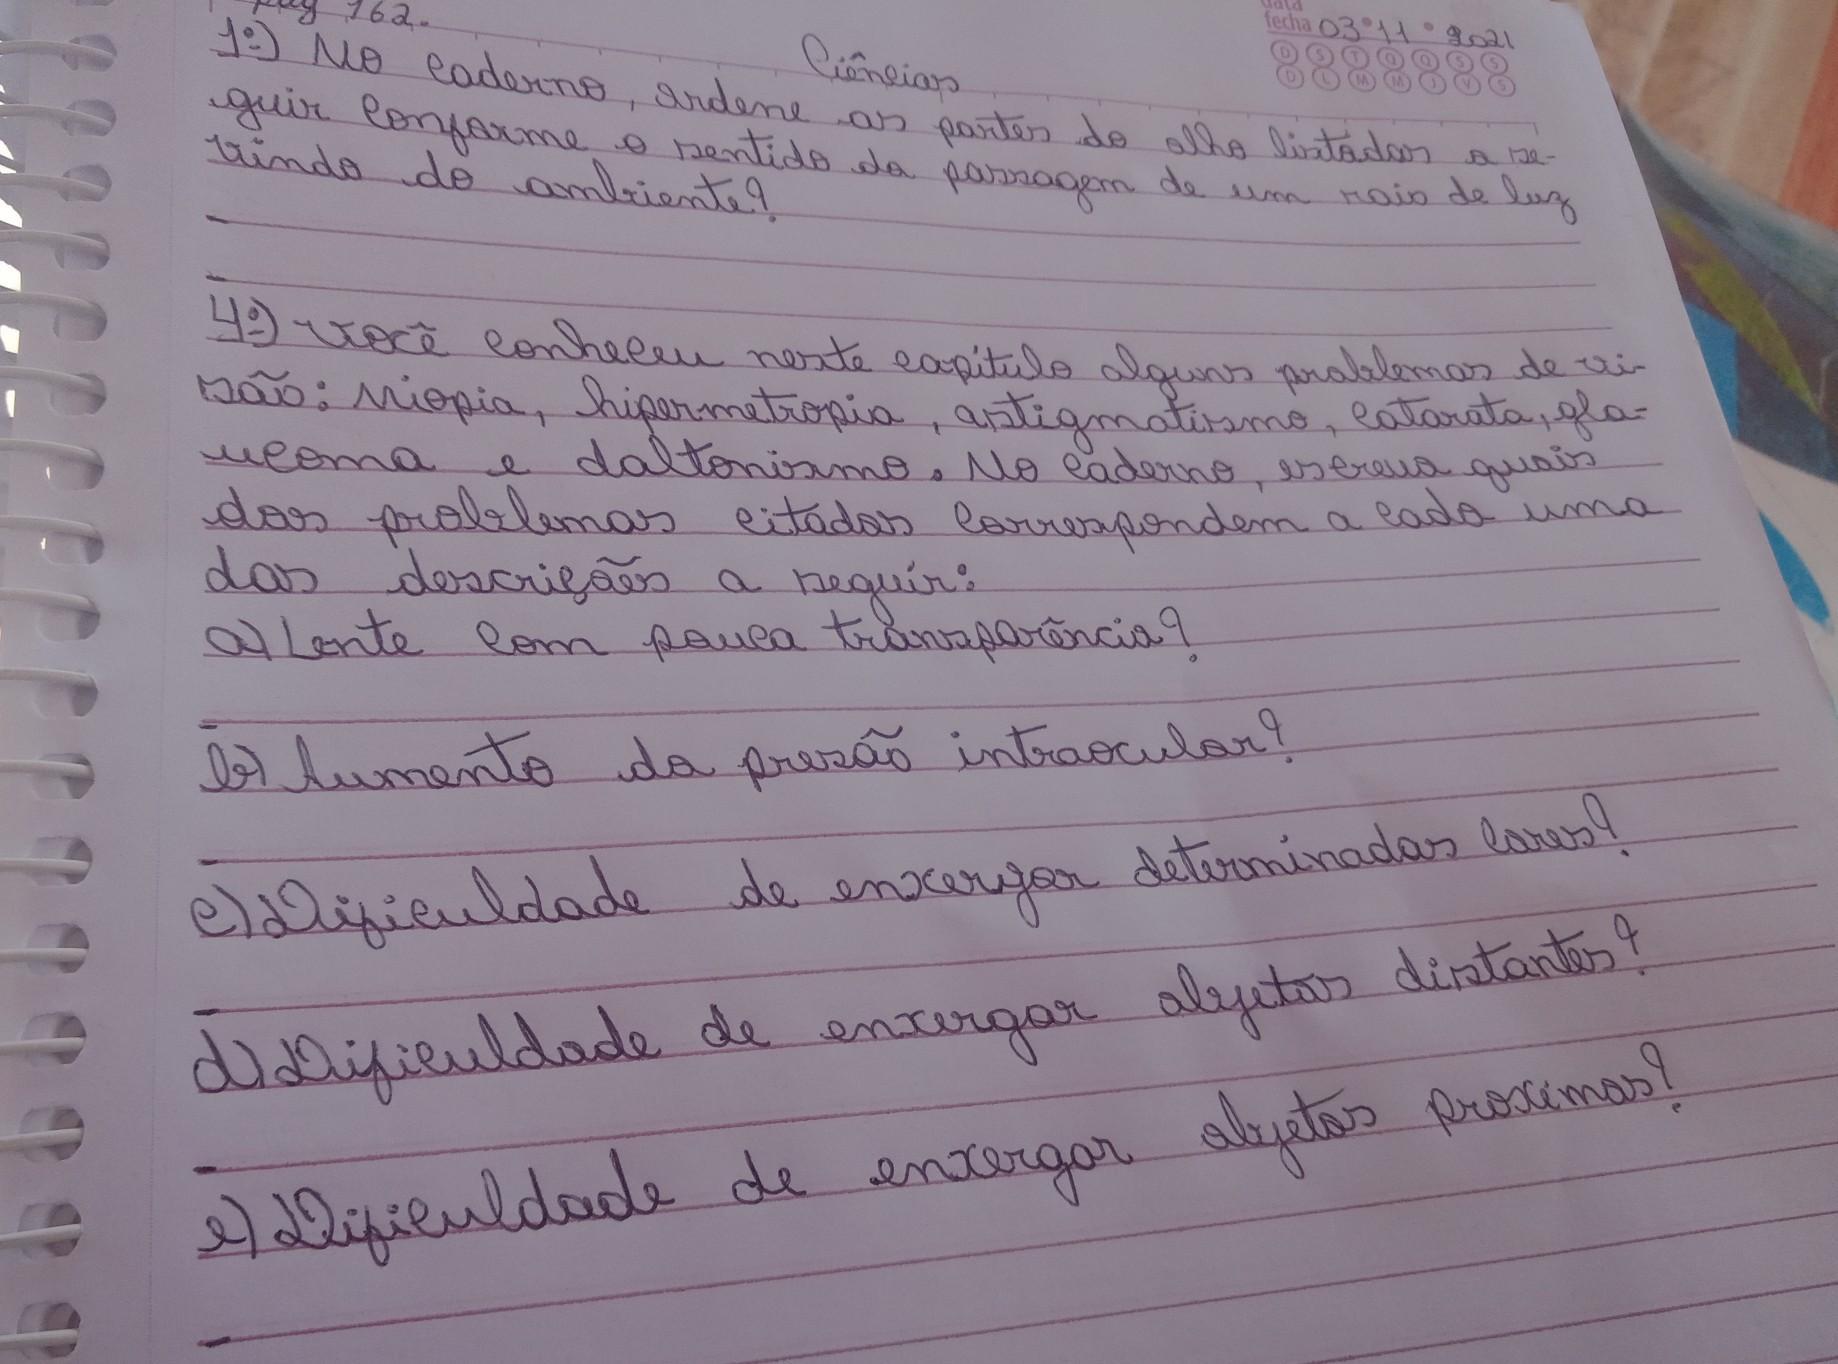 pag 162.
data
fecha 03 11 2021
D S T Q Q S S
D L M M J V S
Ciências
1º) No caderno, ordene as partes do olho listadas a se-
guir conforme o sentido da passagem de um raio de luz
vindo do ambiente?
4º) você conheceu neste capítulo alguns problemas de vi-
são: Miopia, hipermetropia, astigmatismo, catarata, gla-
ucoma e daltonismo. No caderno, escreva quais
dos problemas citados correspondem a cada uma
das descrições a seguir:
a) Lente com pouca transparência?
b) Aumento da presão intraocular?
c) Dificuldade de enxergar determinadas cores?
d) Dificuldade de enxergar objetos distantes?
e) Dificuldade de enxergar objetos proximos?